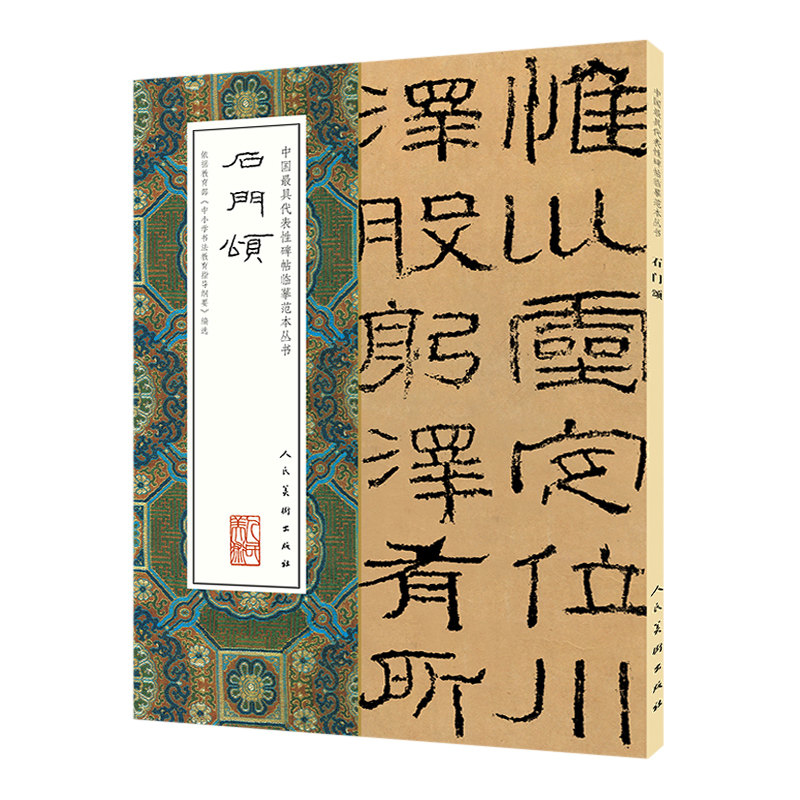 惟㘯靈定位川
澤股躬澤有所
中国最具代表性碑帖临摹范本丛书
石門頌
依据教育部《中小学书法教育指导纲要》编选
人民美術出版社
人民美術
中国最具代表性碑帖临摹范本丛书
石门颂
人民美術出版社